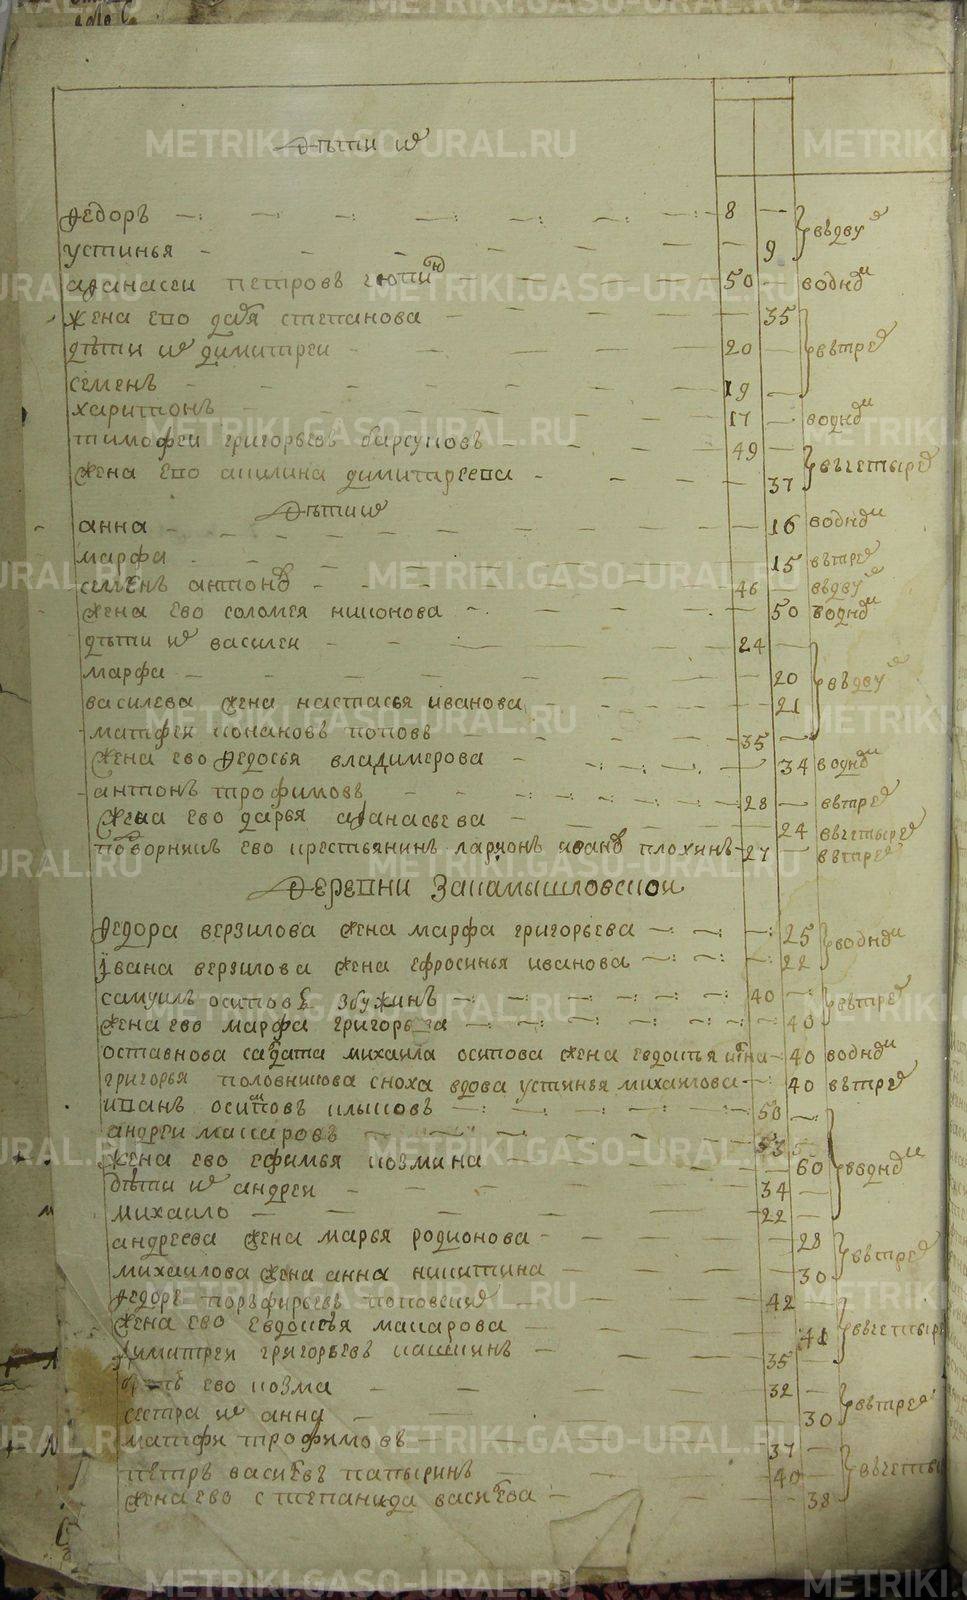 METRIKI.GASO-URAL.RU
дѣти их
Федоръ 8 въдву
устинья 9
афанасеи петровъ 50 водно
жена ево степанова 35
дѣти их димитреи 20 втре
семенъ 19
харитонъ 17 водно
тимофеи григорьевъ барсуковъ 49 вчетыре
жена ево акилина димитреева 37
дѣти их
анна 16 водно
марфа 15 втре
семенъ антоновъ 46 въдву
жена ево соломея никонова 50 водно
дѣти их василеи 24
марфа 20 въдву
василева жена настасья иванова 21
матфеи кононовъ поповъ 35
жена ево федосья владимерова 34 водно
антонъ трофимовъ 28 втре
жена ево дарья афанасьева 24 вчетыре
подворникъ ево крестьянинъ ларионъ ивановъ плохинъ 27 втре
Деревни Закамышловскои
федора верзилова жена марфа григорьева 25 водно
ївана верзилова жена ефросинья иванова 22
самуилъ осиповъ збужинъ 40 втре
жена ево марфа григорьева 40
оставнова салдата михаила осипова жена евдокья 40 водно
григорья половникова сноха вдова устинья михаилова 40 втре
иванъ осиповъ клыковъ 50
андреи макаровъ 53
жена ево ефимья козмина 60 водно
дѣти их андреи 34
михаило 22
андреева жена марья родионова 28 втре
михаилова жена анна никитина 30
федоръ порфирьевъ поповских 42
жена ево евдокья макарова 41 вчетыре
димитреи григорьевъ кашкинъ 35
братъ ево козма 32 втре
сестра их анна 30
матфеи трофимовъ 37
петръ василевъ папыринъ 40 вчеты
жена ево степанида василева 38